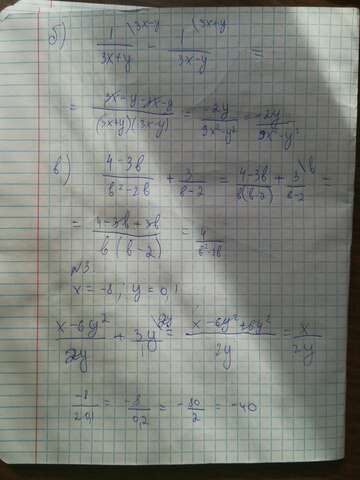 б) 1/(3x+y) \3x-y - 1/(3x-y) \3x+y =
= (3x-y-3x-y)/((3x+y)(3x-y)) = -2y/(9x²-y²) = -2y/(9x²-y²)
в) (4-3b)/(b²-2b) + 3/(b-2) = (4-3b)/(b(b-2)) + 3/(b-2) \b =
= (4-3b+3b)/(b(b-2)) = 4/(b²-2b)
№3.
x = -8, y = 0,1
(x-6y²)/2y + 3y/1 \2y = (x-6y²+6y²)/2y = x/2y
-8/2·0,1 = -8/0,2 = -80/2 = -40